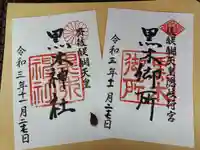 後醍醐天皇隠岐行宮
黒木御所
令和三年十一月二七日
後醍醐天皇
黒木神社
令和三年十一月二七日